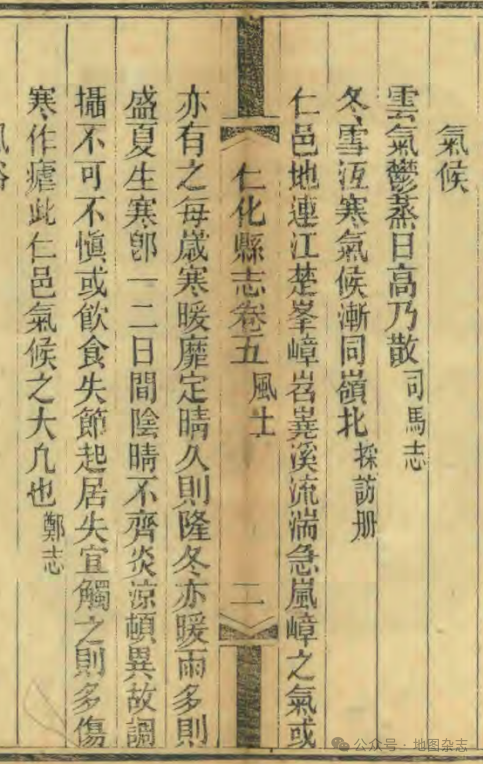 氣候
雲氣鬱蒸日高乃散司馬志
冬雪沍寒氣候漸同嶺北採訪册
仁邑地連江楚峯嶂岧嶤溪流湍急嵐嶂之氣或
仁化縣志卷五 風土 二
亦有之每歲寒暖靡定晴久則隆冬亦暖雨多則
盛夏生寒卽一二日間陰晴不齊炎涼頓異故調
攝不可不愼或飮食失節起居失宜觸之則多傷
寒作瘧此仁邑氣候之大凡也鄭志
公众号·地图杂志